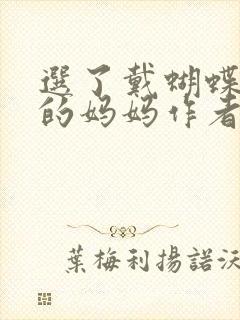 選了戴蝴蝶
的妈妈作者
葉梅利揚諾沃